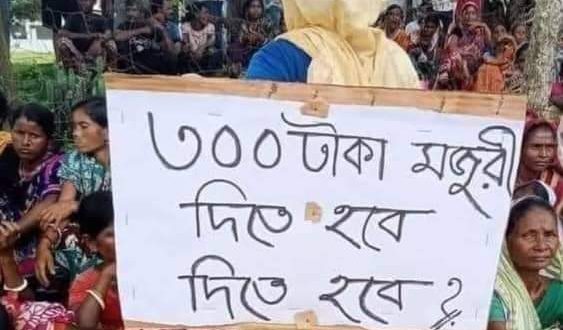 ৩০০ টাকা মজুরী
দিতে হবে
দিতে হবে